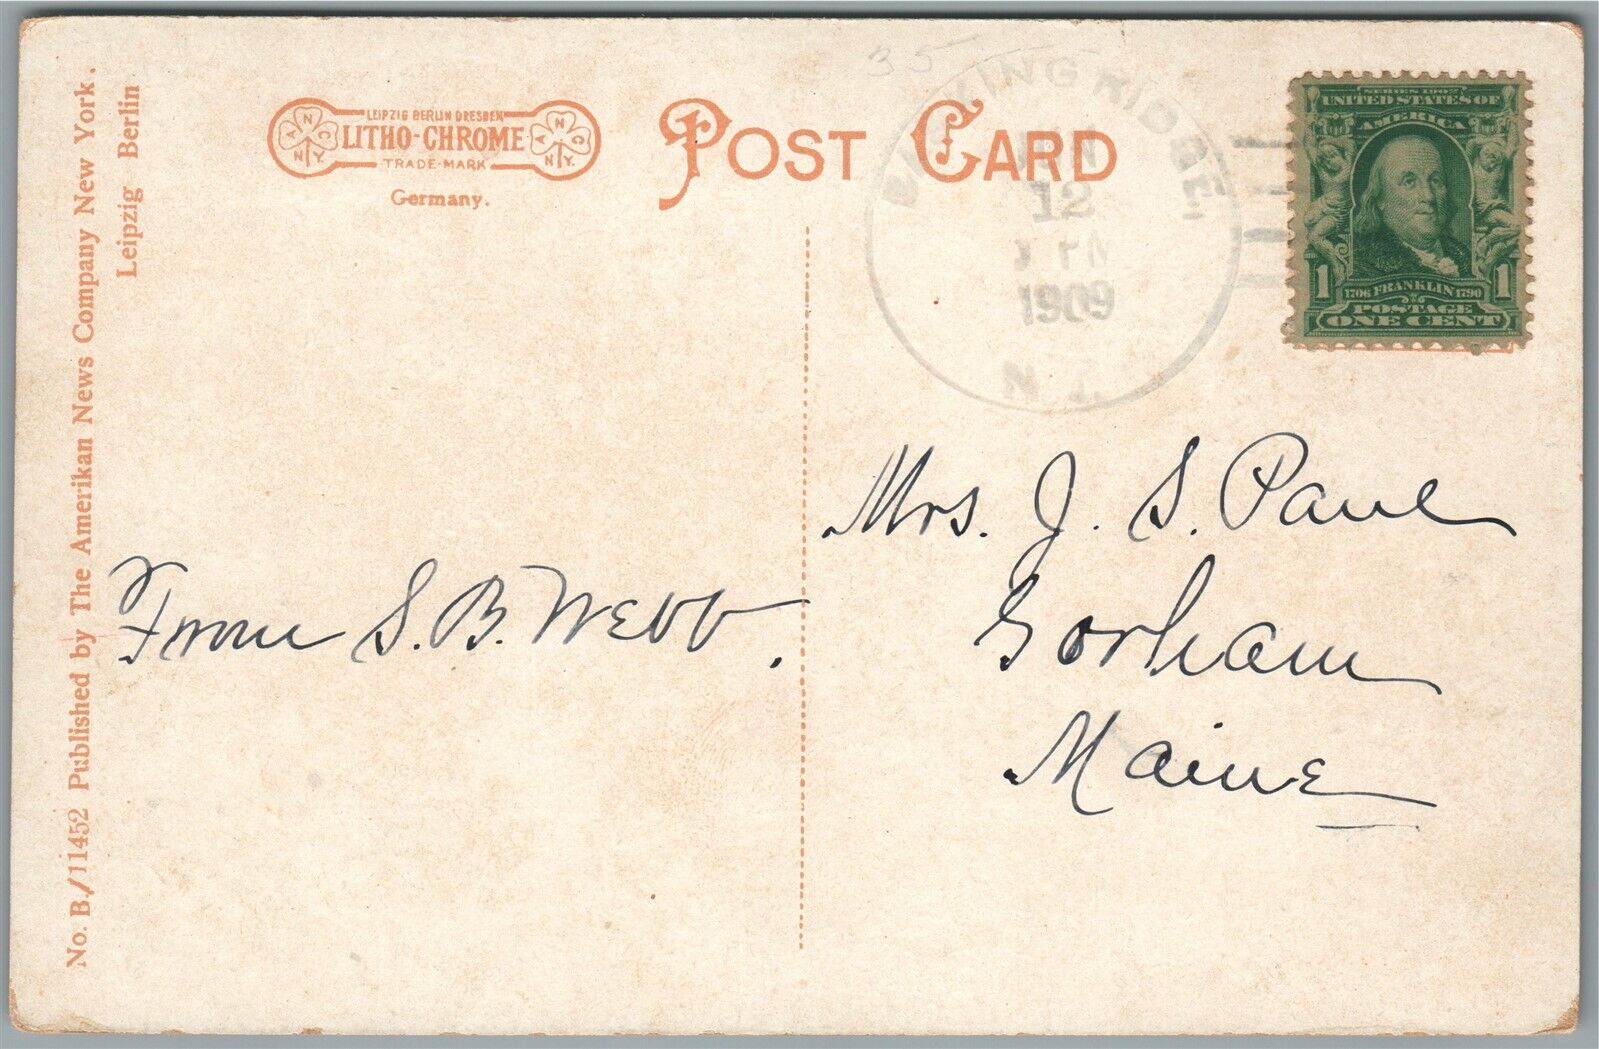 No. B./11452 Published by The Amerikan News Company New York.
Leipzig Berlin
LEIPZIG BERLIN DRESDEN
LITHO-CHROME
TRADE-MARK
A N C
N.Y.
A N C
N.Y.
Germany.
POST CARD
35
BASKING RIDGE,
12
PM
1909
N.J.
SERIES 1902
UNITED STATES OF
AMERICA
1 1
1706 FRANKLIN 1790
POSTAGE
ONE CENT
From S. B. Webb.
Mrs. J. S. Paul
Gorham
Maine